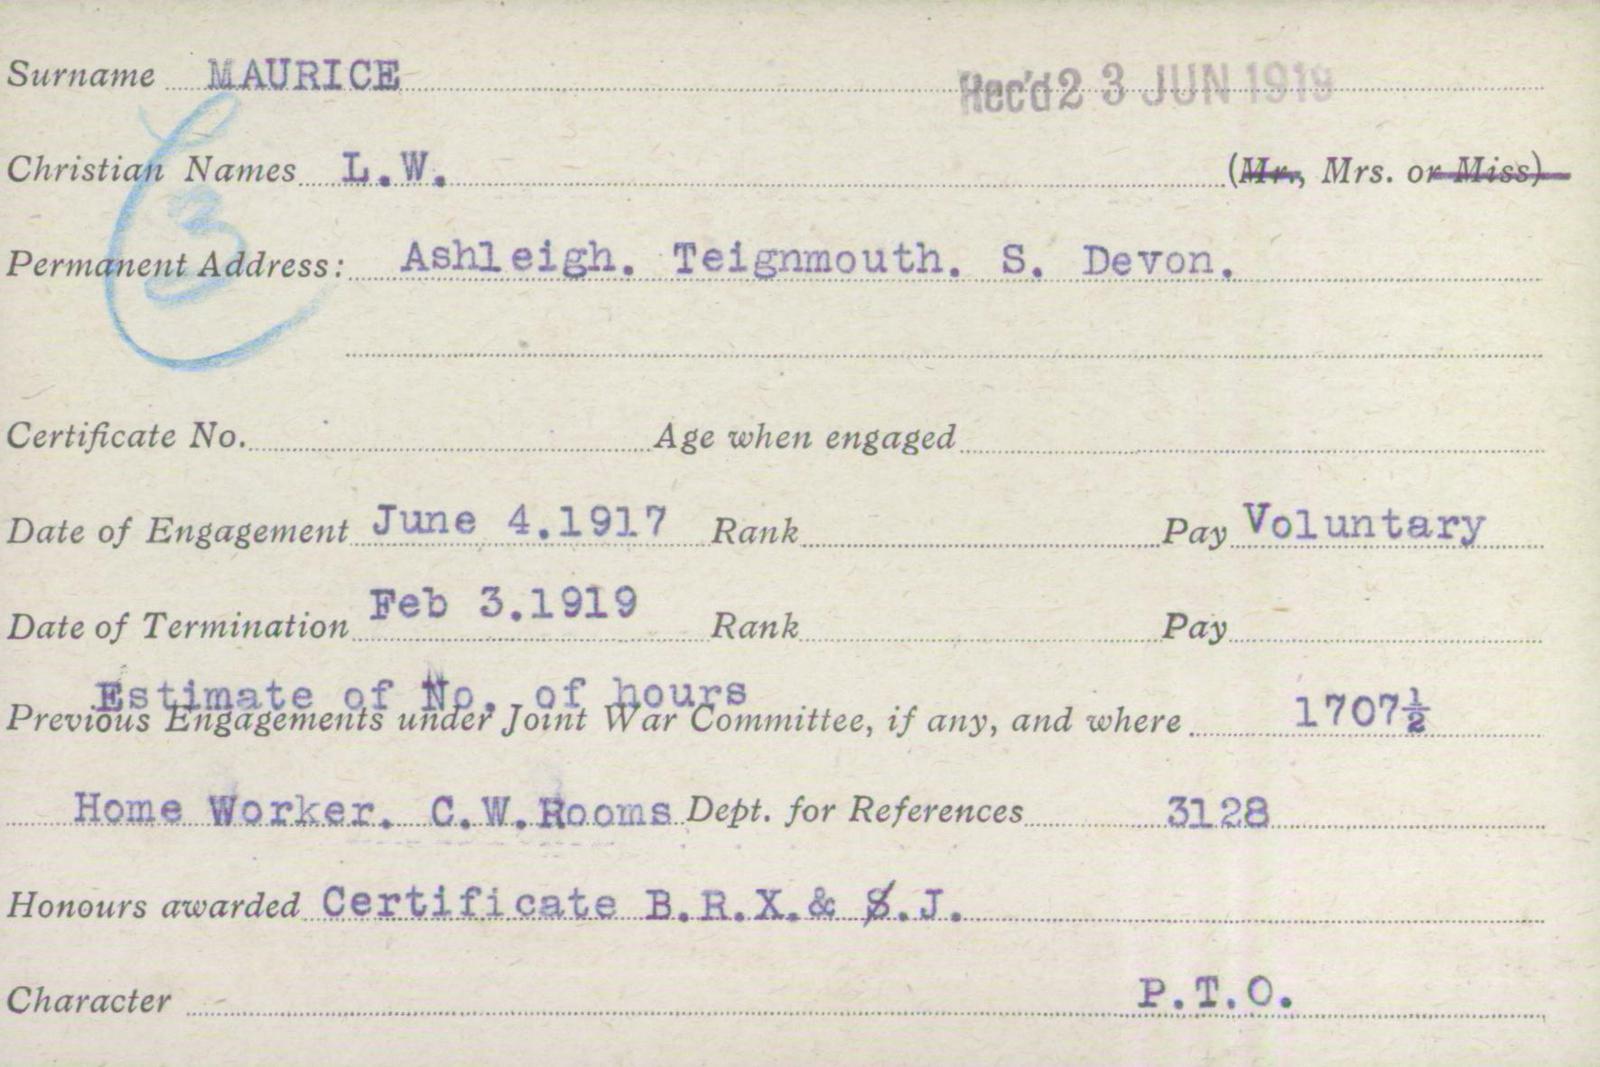 Surname MAURICE Rec'd 23 JUN 1919
Christian Names L.W. (Mr., Mrs. or Miss)
Permanent Address: Ashleigh. Teignmouth. S. Devon.
3
Certificate No. Age when engaged
Date of Engagement June 4.1917 Rank Pay Voluntary
Date of Termination Feb 3.1919 Rank Pay
Estimate of No. of hours
Previous Engagements under Joint War Committee, if any, and where 1707½
Home Worker. C.W.Rooms Dept. for References 3128
Honours awarded Certificate B.R.X.& S.J.
Character P.T.O.